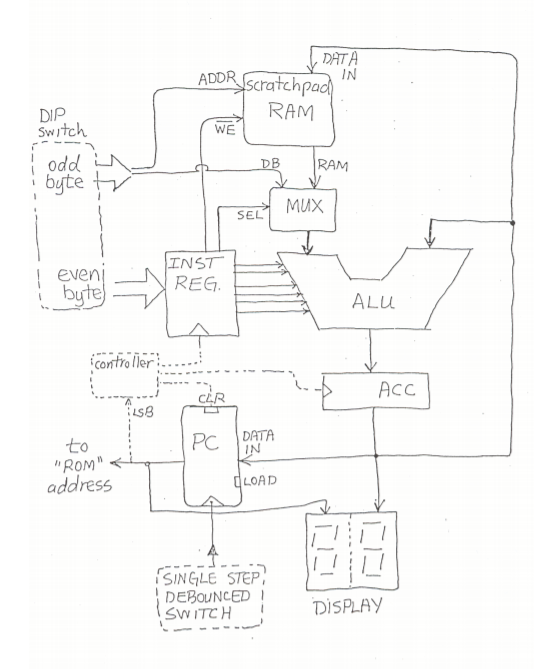 DATA
IN
ADDR
Scratchpad
RAM
WE
DIP
switch
odd
byte
DB
RAM
SEL
MUX
INST
REG.
even
byte
ALU
controller
CLR
ACC
LSB
PC
DATA
IN
to
"ROM"
address
LOAD
SINGLE STEP
DEBOUNCED
SWITCH
DISPLAY